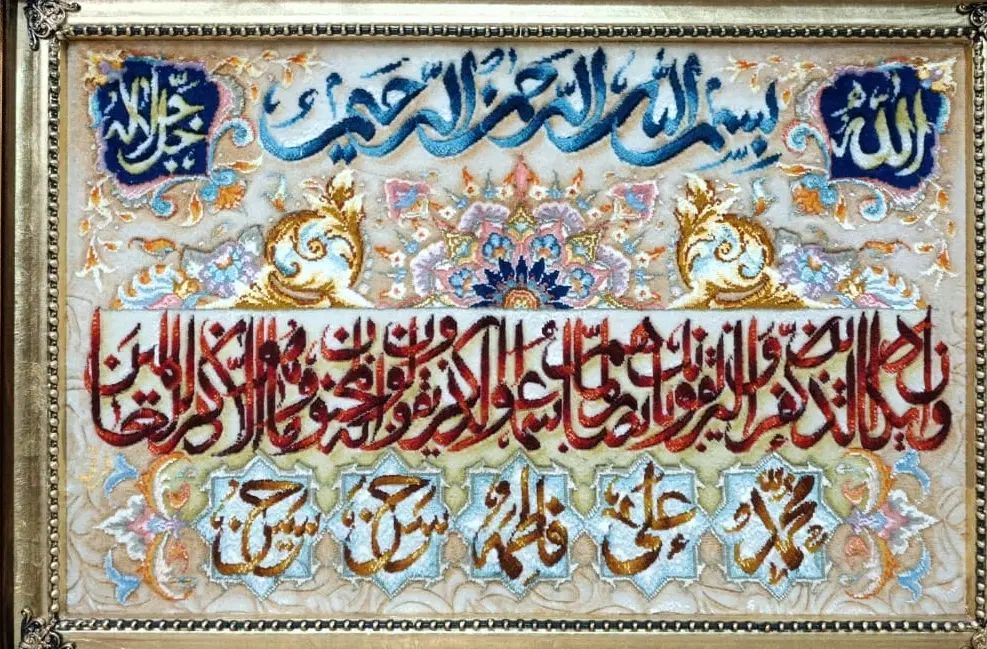 الله بسم الله الرحمن الرحيم جل جلاله
وان يكاد الذين كفروا ليزلقونك بابصارهم لما سمعوا الذكر ويقولون انه لمجنون وما هو الا ذكر للعالمين
محمد علی فاطمه حسن حسین